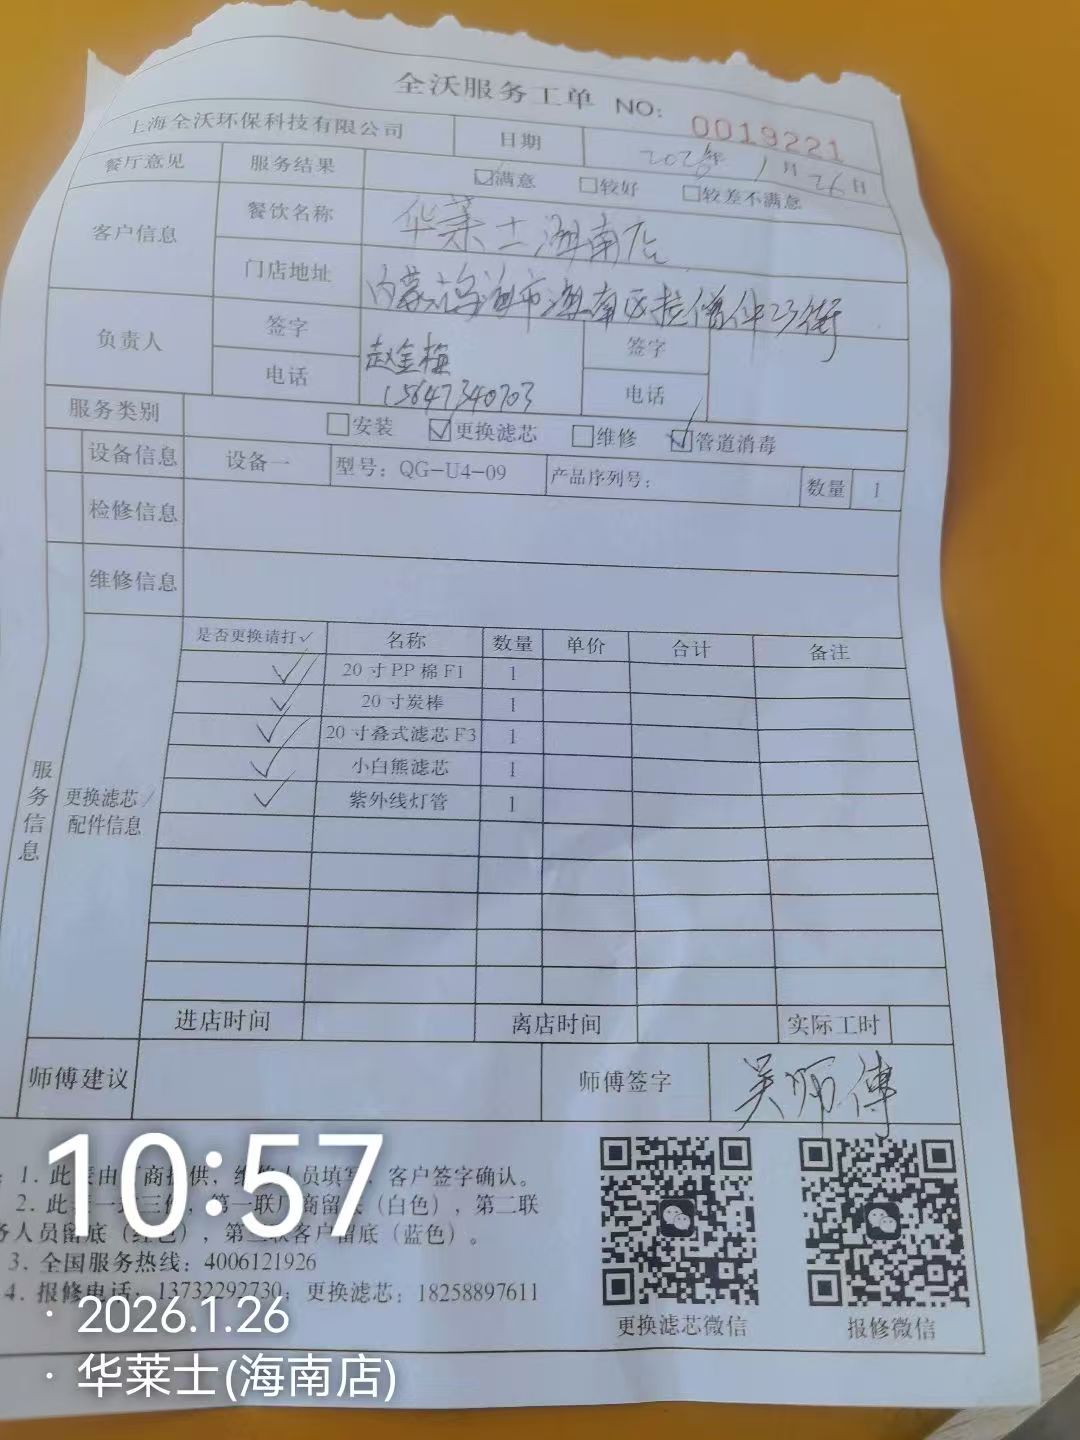 全沃服务工单 NO: 0019221
上海全沃环保科技有限公司 日期 2026年 1月 26日
餐厅意见 服务结果 ☑满意 □较好 □较差不满意
客户信息 餐饮名称 华莱士海南店
门店地址 内蒙古乌海市海南区拉僧仲23街
负责人 签字 赵金梅 签字
电话 15647340703 电话
服务类别 □安装 ☑更换滤芯 □维修 ☑管道消毒
设备信息 设备一 型号: QG-U4-09 产品序列号: 数量 1
检修信息
维修信息
是否更换请打✓ 名称 数量 单价 合计 备注
✓ 20寸PP棉F1 1
✓ 20寸炭棒 1
✓ 20寸叠式滤芯F3 1
✓ 小白熊滤芯 1
✓ 紫外线灯管 1
服务信息
更换滤芯/
配件信息
进店时间 离店时间 实际工时
师傅建议 师傅签字 吴师傅
1. 此表由厂商提供，维修人员填写，客户签字确认。
2. 此表一式三份，第一联厂商留底（白色），第二联
务人员留底（红色），第三联客户留底（蓝色）。
3. 全国服务热线: 4006121926
4. 报修电话: 13732292730; 更换滤芯: 18258897611
更换滤芯微信 报修微信
10:57
· 2026.1.26
· 华莱士(海南店)